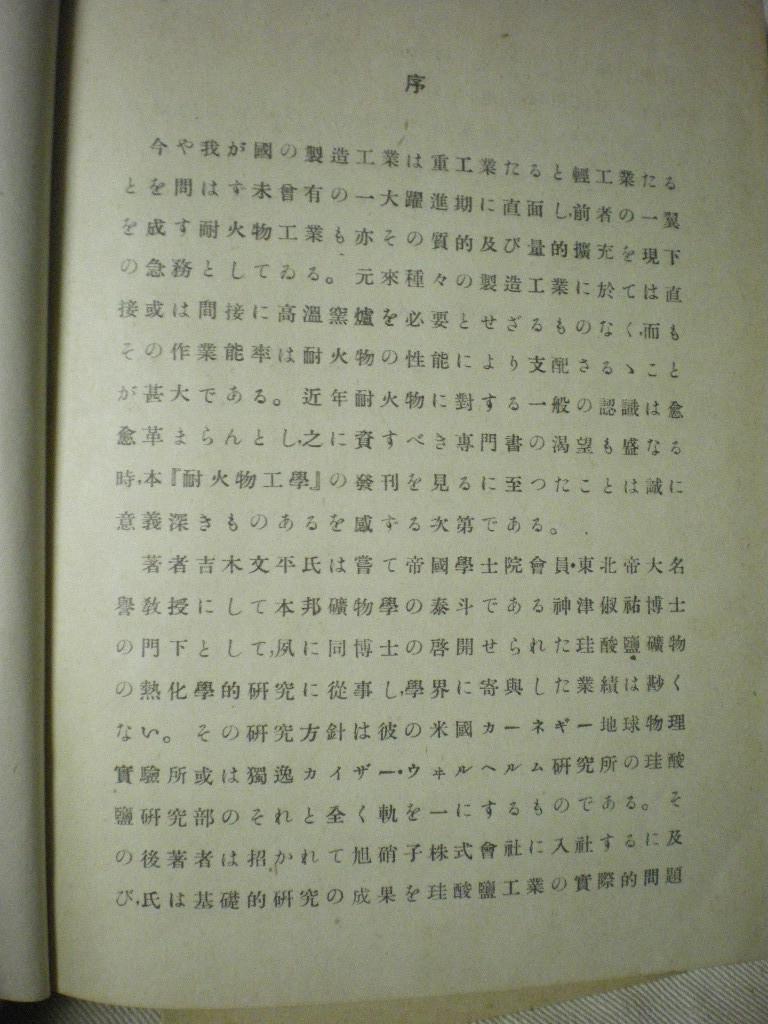 序
今や我が國の製造工業は重工業たると輕工業たる
とを問はす未曾有の一大躍進期に直面し,前者の一翼
を成す耐火物工業も亦その質的及び量的擴充を現下
の急務としてゐる。元來種々の製造工業に於ては直
接或は間接に高溫窯爐を必要とせざるものなく,而も
その作業能率は耐火物の性能により支配さるゝこと
が甚大である。近年耐火物に對する一般の認識は愈
愈革まらんとし,之に資すべき專門書の渴望も盛なる
時,本『耐火物工學』の發刊を見るに至つたことは誠に
意義深きものあるを感する次第である。
著者吉木文平氏は嘗て帝國學士院會員・東北帝大名
譽敎授にして本邦礦物學の泰斗である神津俶祐博士
の門下として,夙に同博士の啓開せられた珪酸鹽礦物
の熱化學的硏究に從事し,學界に寄與した業績は尠く
ない。その硏究方針は彼の米國カーネギー地球物理
實驗所或は獨逸カイザー・ウヰルヘルム硏究所の珪酸
鹽硏究部のそれと全く軌を一にするものである。そ
の後著者は招かれて旭硝子株式會社に入社するに及
び,氏は基礎的硏究の成果を珪酸鹽工業の實際的問題